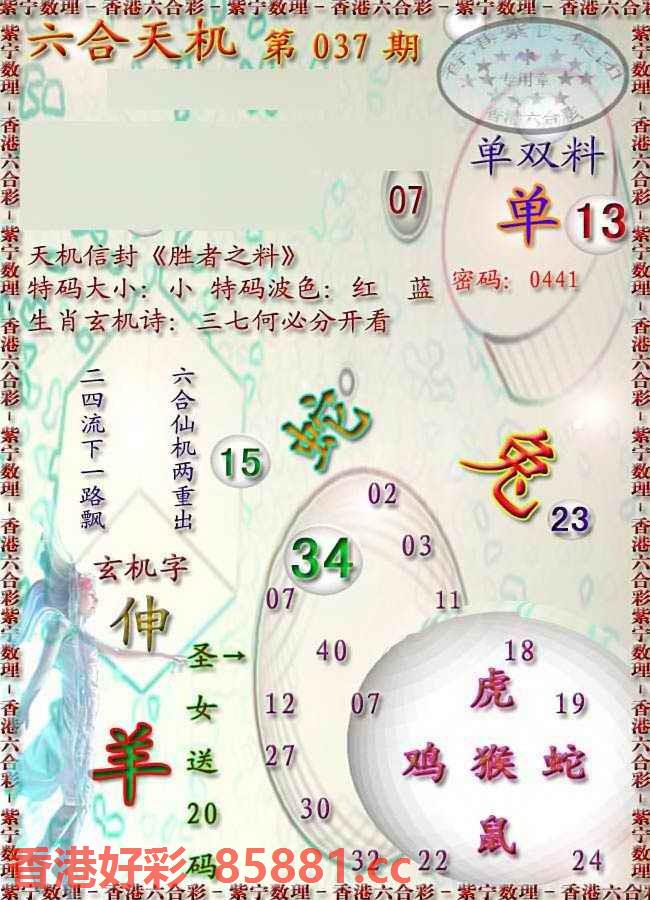 紫宁数理－香港六合彩－紫宁数理－香港六合彩－紫宁数理－香港六合彩
六合天机 第 037 期
专用章
香港六合彩
07
单双料
单 13
天机信封《胜者之料》
特码大小：小 特码波色：红 蓝 密码：0441
生肖玄机诗：三七何必分开看
六合仙机两重出
二四流下一路飘
蛇
15
兔
23
02
34
03
玄机字
伸
07
11
圣→
女
送
20
码
羊
40
18
虎
12
07
19
鸡 猴 蛇
27
30
鼠
32
22
24
香港好彩 85881.cc
紫宁数理－香港六合彩－紫宁数理－香港六合彩－紫宁数理－香港六合彩